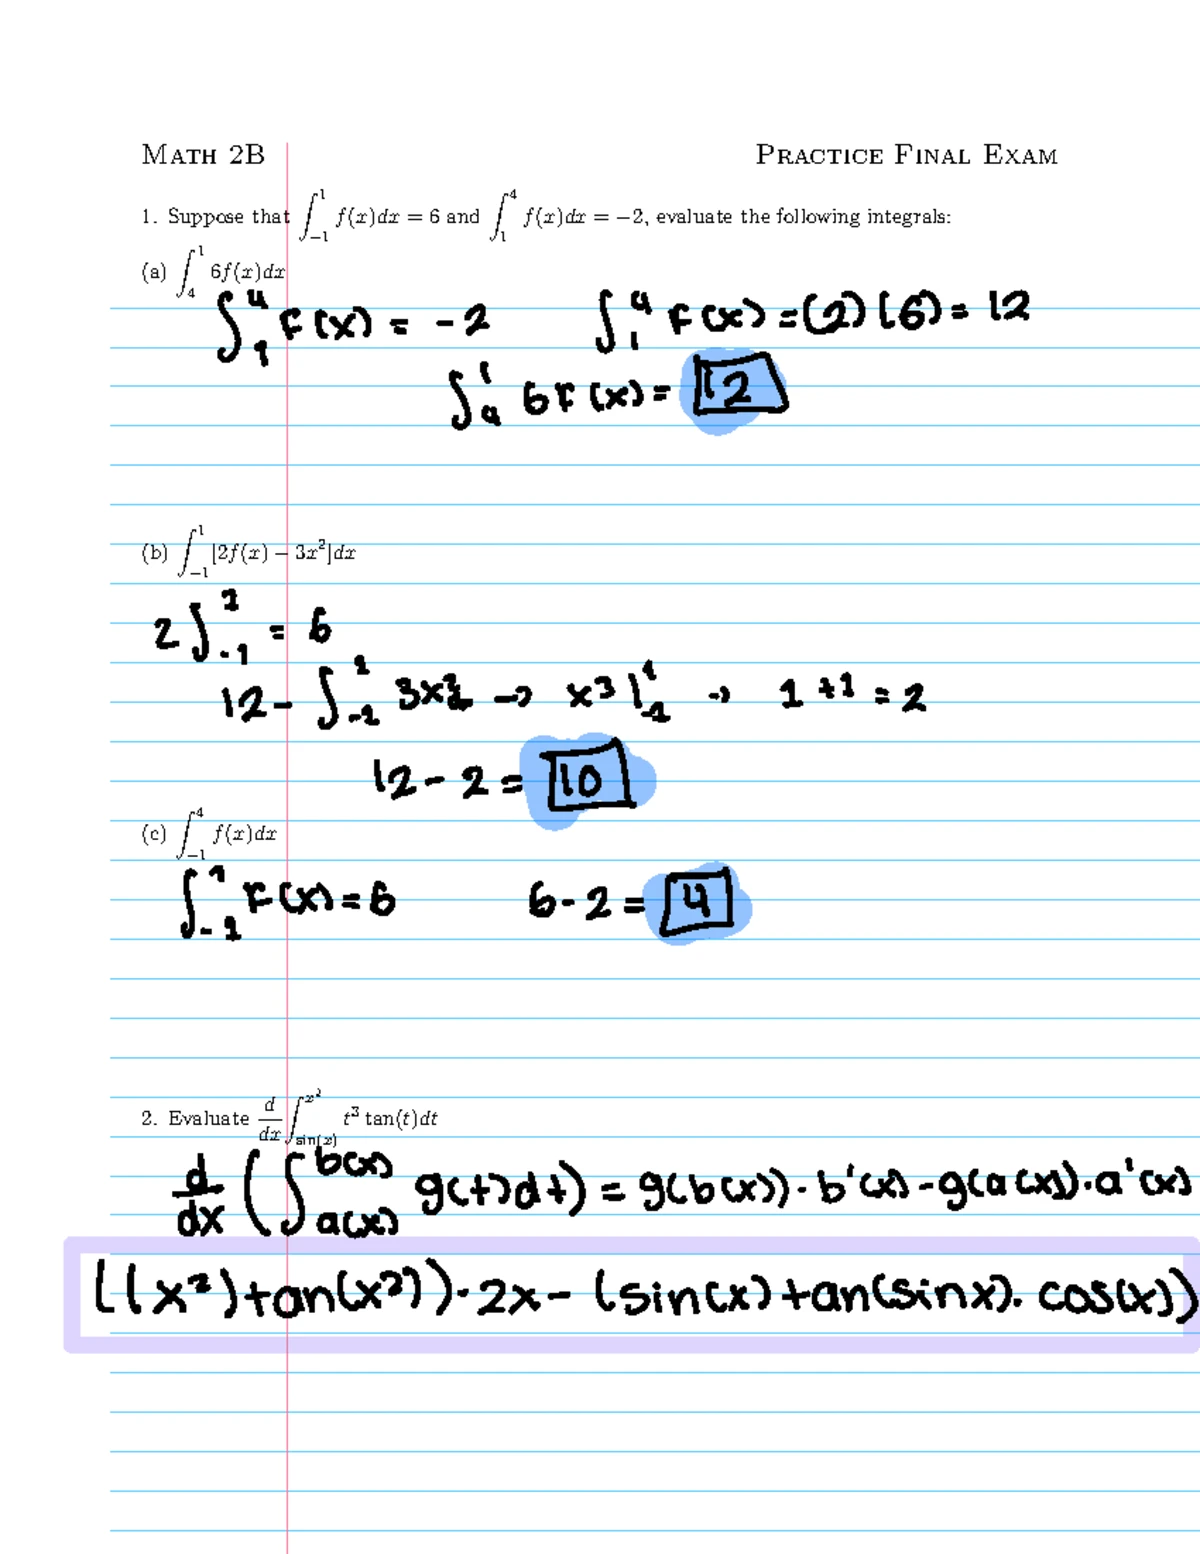 MATH 2B PRACTICE FINAL EXAM
1. Suppose that ∫_{-1}^{1} f(x)dx = 6 and ∫_{1}^{4} f(x)dx = −2, evaluate the following integrals:
(a) ∫_{4}^{1} 6f(x)dx
∫_{1}^{4} F(x) = -2 ∫_{1}^{4} F(x) = (2)(6) = 12
∫_{4}^{1} 6F(x) = 12
(b) ∫_{-1}^{1} [2f(x) − 3x²]dx
2∫_{-1}^{1} = 6
12 - ∫_{-1}^{1} 3x² → x³ |_{-1}^{1} → 1 + 1 = 2
12 - 2 = 10
(c) ∫_{-1}^{4} f(x)dx
∫_{-1}^{1} F(x) = 6 6 - 2 = 4
2. Evaluate d/dx ∫_{sin(x)}^{x²} t³ tan(t)dt
d/dx (∫_{a(x)}^{b(x)} g(t)dt) = g(b(x))·b'(x) - g(a(x))·a'(x)
((x²)tan(x²))·2x - (sin(x)tan(sinx)·cos(x))